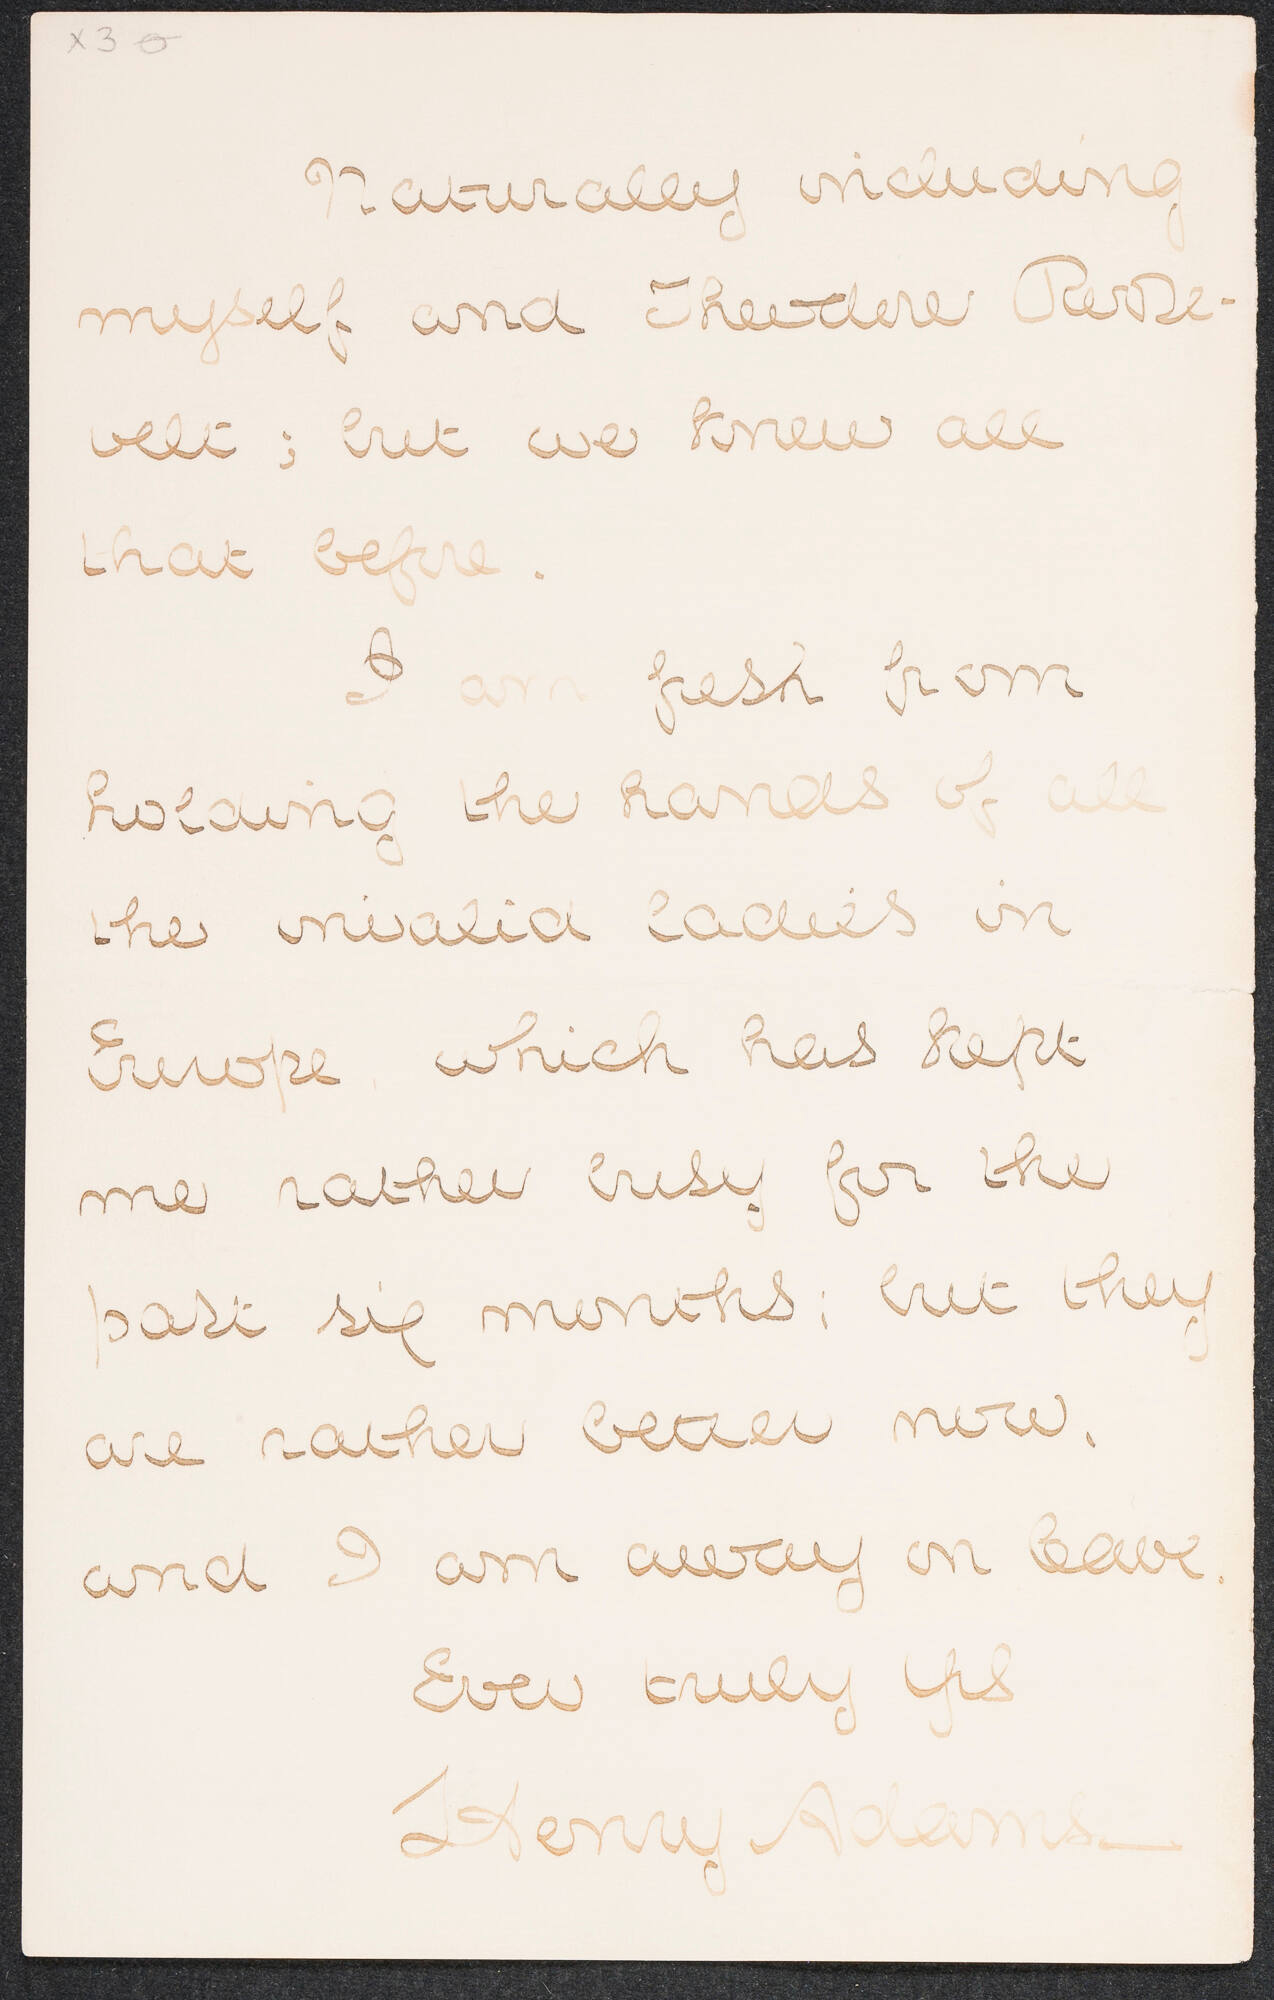 x 3
Naturally including
myself and Theodore Roose-
velt; but we knew all
that before.
I am fresh from
holding the hands of all
the invalid ladies in
Europe, which has kept
me rather busy for the
past six months; but they
are rather better now,
and I am away on leave.
Ever truly Yrs
Henry Adams